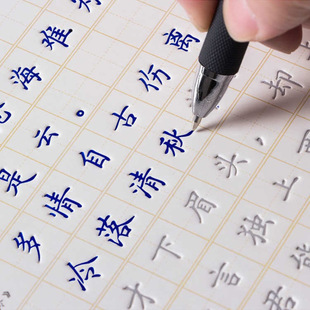 海难
是云。
多情自古伤离
冷落清秋
才下眉头，却
言独上西
君能